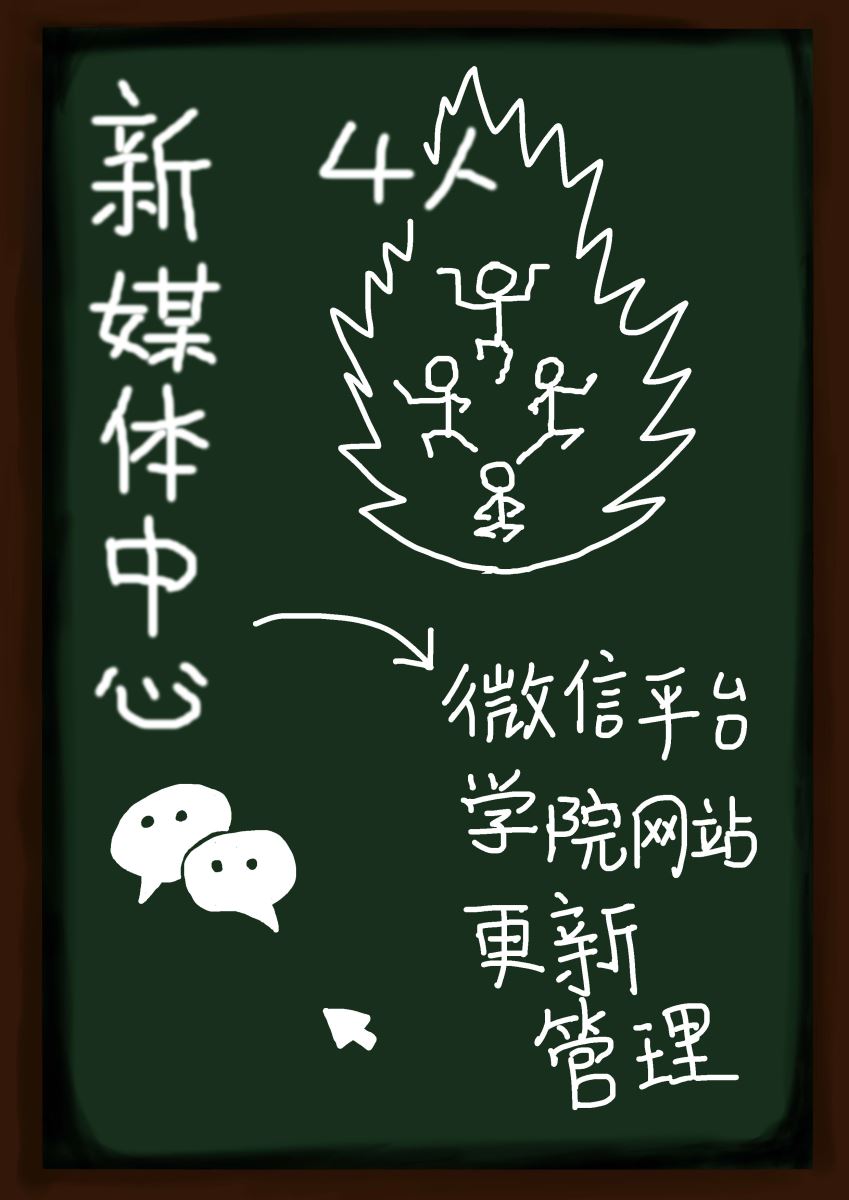 新媒体中心
4人
微信平台
学院网站
更新
管理